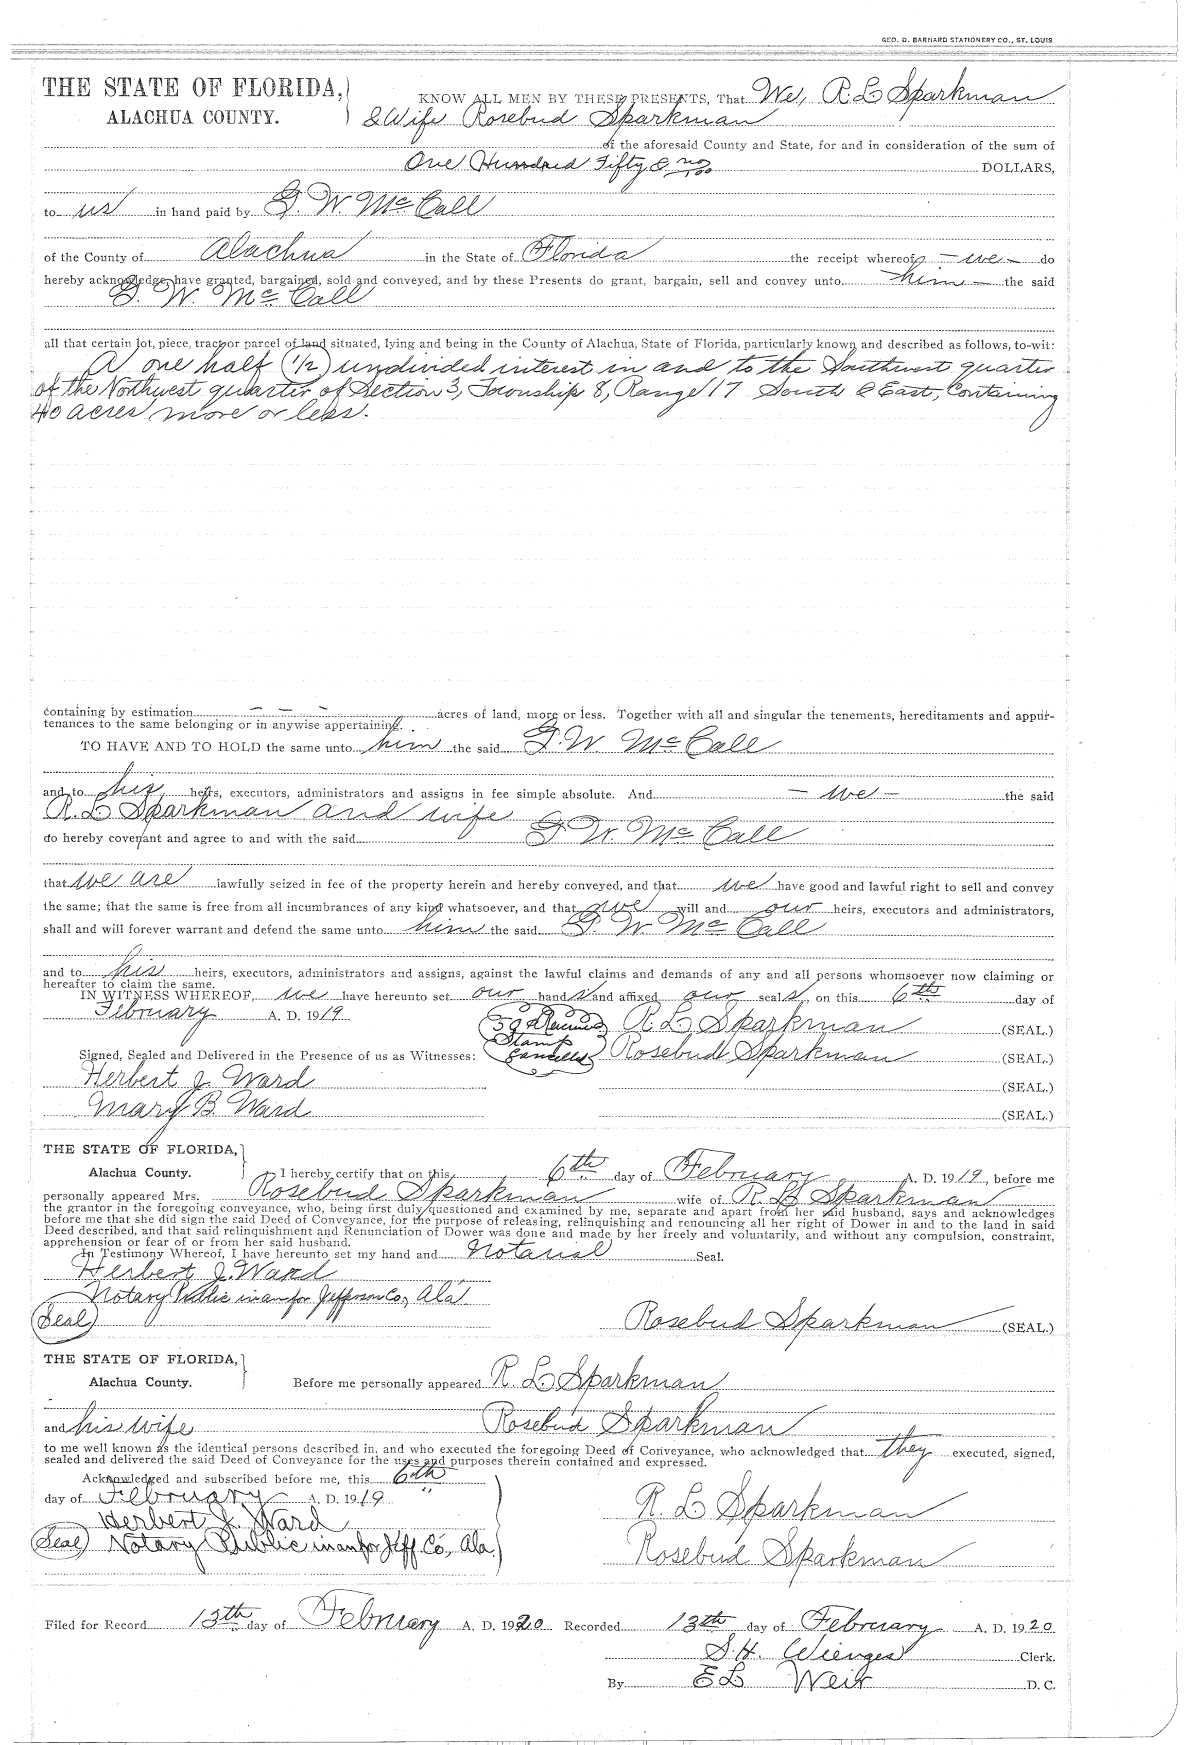 GEO. D. BARNARD STATIONERY CO., ST. LOUIS
THE STATE OF FLORIDA,
ALACHUA COUNTY.
KNOW ALL MEN BY THESE PRESENTS, That We, R. L. Sparkman
& Wife Rosebud Sparkman
of the aforesaid County and State, for and in consideration of the sum of
One Hundred Fifty & no/100 DOLLARS,
to us in hand paid by G. W. McCall
of the County of Alachua in the State of Florida the receipt whereof - we - do
hereby acknowledge, have granted, bargained, sold and conveyed, and by these Presents do grant, bargain, sell and convey unto him - the said
G. W. McCall
all that certain lot, piece, tract or parcel of land situated, lying and being in the County of Alachua, State of Florida, particularly known and described as follows, to-wit:
A one half (1/2) undivided interest in and to the Southwest quarter
of the Northwest quarter of Section 3, Township 8, Range 17 South & East, Containing
40 acres more or less.
containing by estimation - - - acres of land, more or less. Together with all and singular the tenements, hereditaments and appur-
tenances to the same belonging or in anywise appertaining.
TO HAVE AND TO HOLD the same unto him the said G. W. McCall
and to his heirs, executors, administrators and assigns in fee simple absolute. And - we - the said
R. L. Sparkman and wife
do hereby covenant and agree to and with the said G. W. McCall
that we are lawfully seized in fee of the property herein and hereby conveyed, and that we have good and lawful right to sell and convey
the same; that the same is free from all incumbrances of any kind whatsoever, and that we will and our heirs, executors and administrators,
shall and will forever warrant and defend the same unto him the said G. W. McCall
and to his heirs, executors, administrators and assigns, against the lawful claims and demands of any and all persons whomsoever now claiming or
hereafter to claim the same.
IN WITNESS WHEREOF, we have hereunto set our hand s and affixed our seal s, on this 6th day of
February A. D. 1919
R. L. Sparkman (SEAL.)
Stamp
Cancelled
Signed, Sealed and Delivered in the Presence of us as Witnesses: Rosebud Sparkman (SEAL.)
Herbert J. Ward (SEAL.)
Mary B. Ward (SEAL.)
THE STATE OF FLORIDA,
Alachua County.
I hereby certify that on this 6th day of February A. D. 1919, before me
personally appeared Mrs. Rosebud Sparkman wife of R. L. Sparkman
the grantor in the foregoing conveyance, who, being first duly questioned and examined by me, separate and apart from her said husband, says and acknowledges
before me that she did sign the said Deed of Conveyance, for the purpose of releasing, relinquishing and renouncing all her right of Dower in and to the land in said
Deed described, and that said relinquishment and Renunciation of Dower was done and made by her freely and voluntarily, and without any compulsion, constraint,
apprehension or fear of or from her said husband.
In Testimony Whereof, I have hereunto set my hand and Notarial Seal.
Herbert J. Ward
Notary Public in an for Jefferson Co, Ala.
Seal
Rosebud Sparkman (SEAL.)
THE STATE OF FLORIDA,
Alachua County.
Before me personally appeared R. L. Sparkman
and his wife Rosebud Sparkman
to me well known as the identical persons described in, and who executed the foregoing Deed of Conveyance, who acknowledged that they executed, signed,
sealed and delivered the said Deed of Conveyance for the uses and purposes therein contained and expressed.
Acknowledged and subscribed before me, this 6th
day of February A. D. 1919
R. L. Sparkman
Herbert J. Ward
Seal Notary Public in an for Jeff. Co., Ala.
Rosebud Sparkman
Filed for Record 13th day of February A. D. 1920 Recorded 13th day of February A. D. 1920
S. H. Wienges Clerk.
By E L Weir D. C.